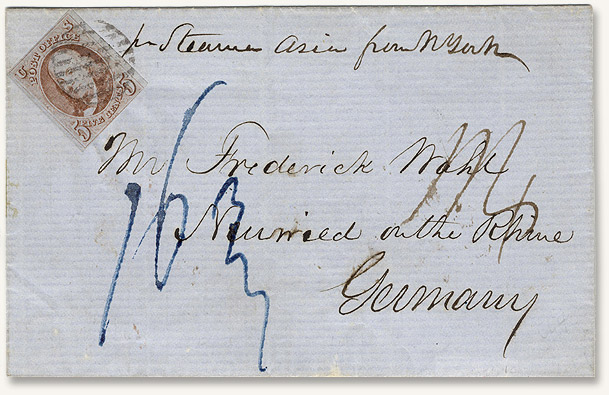 pr Steamer Asia from N York
POST OFFICE
FIVE CENTS
Mr Frederick Wahl
Neuwied on the Rhine
Germany